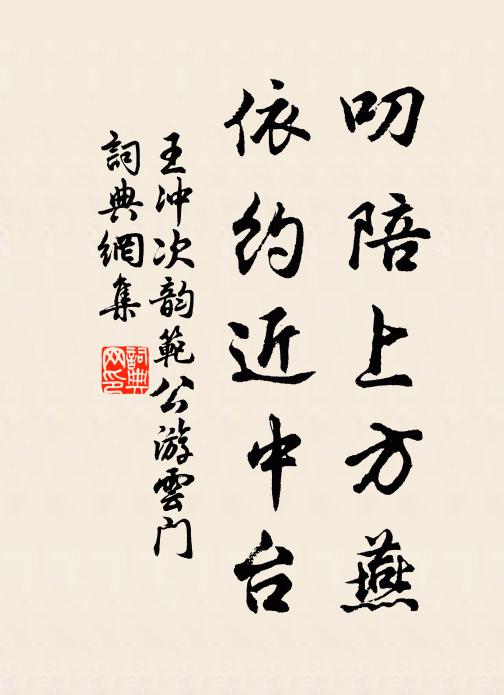 叨陪上方燕
依约近中台
王冲次韵範公游雲门
詞典網集
詞典
网印